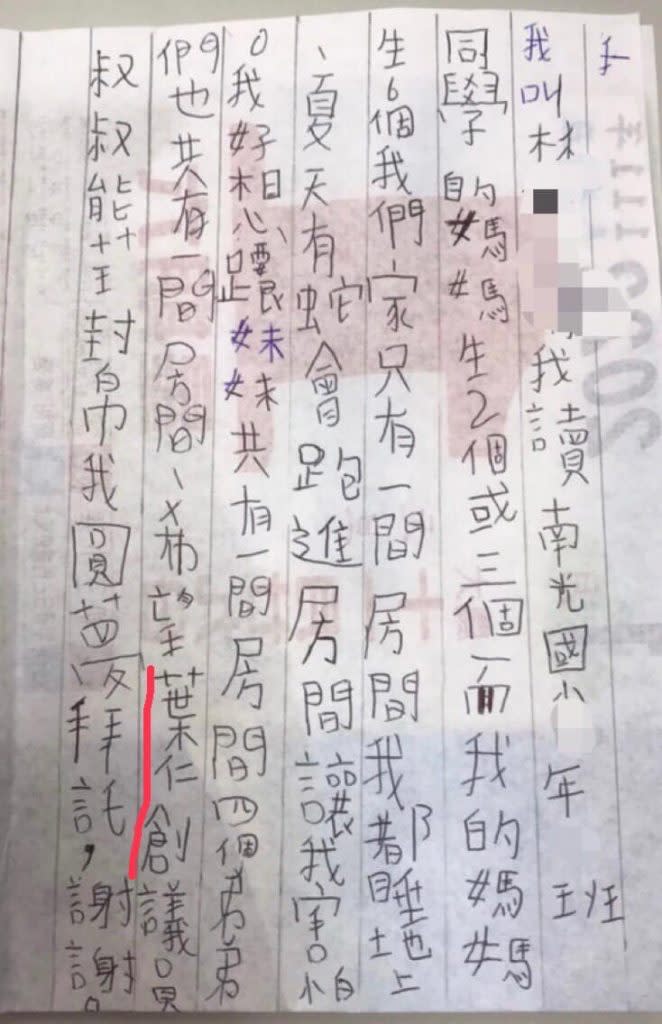 我叫林 我讀南光國小 年 班
同學的媽媽生2個或三個而我的媽媽
生6個我們家只有一間房間我都睡地上
、夏天有蛇會跑進房間讓我害怕
。我好想跟妹妹共有一間房間四個弟弟
們也共有一間房間、希望葉仁創議員
叔叔能幫我圓夢、拜託,謝謝。